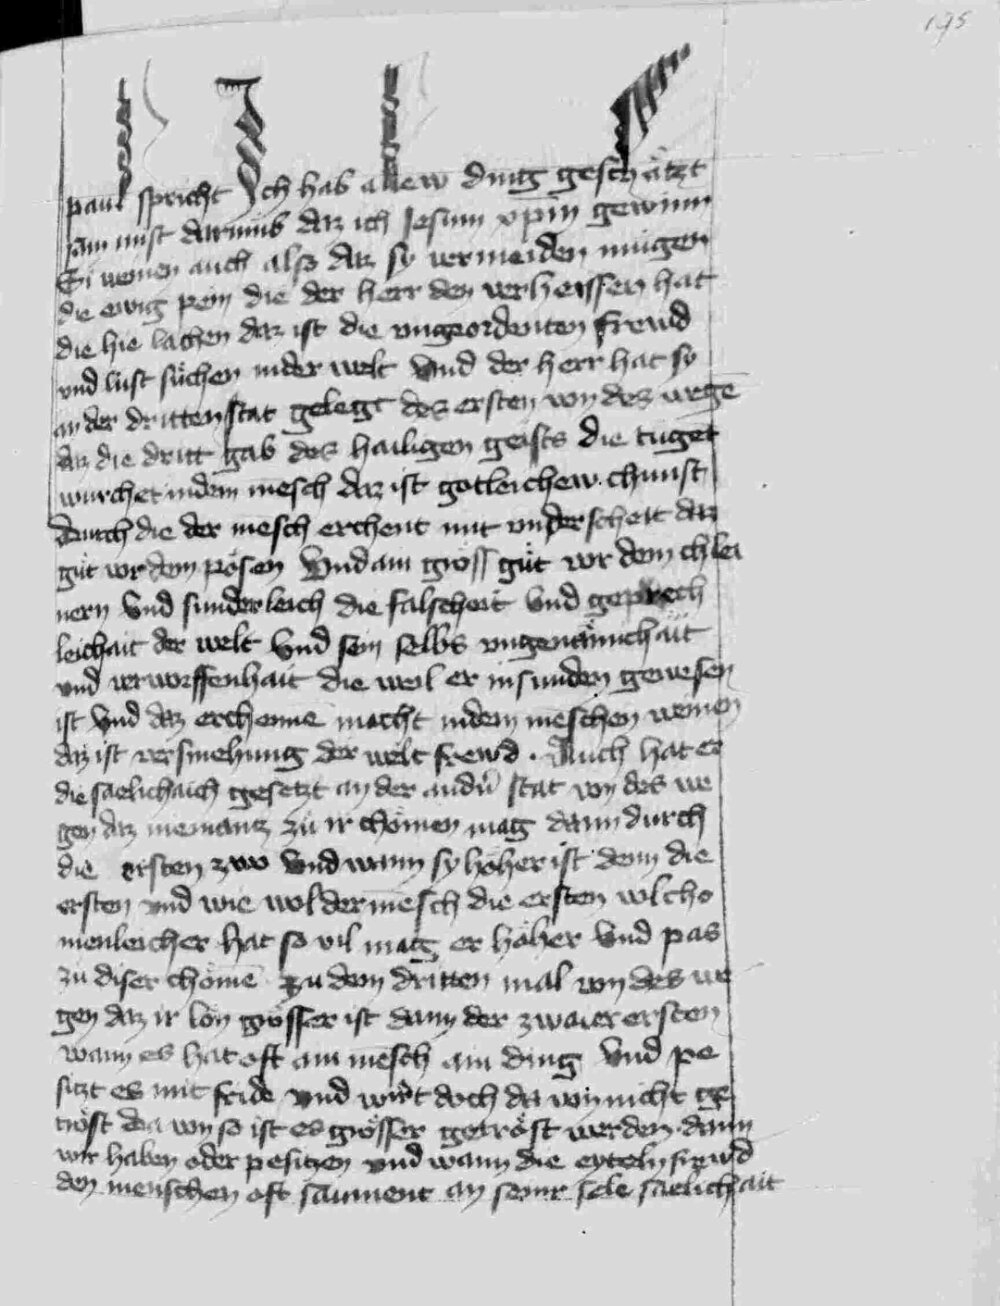 195
paul spricht Ich hab allew ding geschätzt
sam mist darumb daz ich Jesum xpm̄ gewinn
Si wainen auch also daz sy vermeiden mugen
die ewig pein die der herr den verheissen hat
die hie lachen daz ist die ungeordenten frewd
und lust suchen inder welt Und der herr hat sy
an der dritten stat gelegt des ersten von des wegē
daz die dritt gab des hailigen geists die tuget
wurchet indem mēsch daz ist gotleichew chunst
durch die der mēsch erchent mit underscheit daz
gut vor dem pösen Und ain gröss gut vor dem chlei
nern Und sunderleich die falscheit Und geprech
leichait der welt Und sein selbs ungenämichäit
und verworffenhait die weil er in sunden gewesen
ist Und daz erchennē macht indem mēschen wainen
daz ist versmehung der welt frewd . Auch hat er
die saelichaich gesetzt an der andn̄ stat von des we
gen daz niemantz zu ir chömen mag dann durch
die ersten zwo Und wann sy höher ist denn die
ersten und wie vol der mēsch die ersten volcho
menleicher hat so vil mag er höher Und pas
zu diser chömē zu dem dritten mal von des we
gen daz ir lön grösser ist dann der zwaier ersten
wann es hat oft ain mēsch ain ding Und pe
sitzt es mit fride und wirt doch da von nicht ge
tröst da von so ist es grösser getröst werden dann
wir haben oder pesitzen und wann die eyteln frewd
den menschen oft saument an seiner sele saelichait